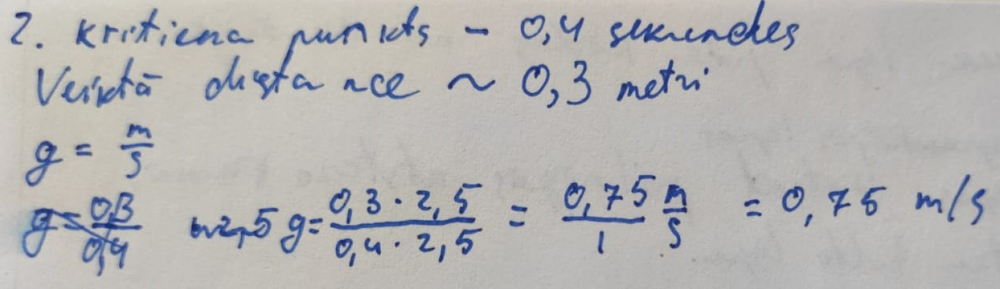 2. kritiena punkts - 0,4 sekundes
Veiktā distance ~ 0,3 metri
g = m/s
g = 0,3/0,4 2,5 g = 0,3 · 2,5 / 0,4 · 2,5 = 0,75/1 m/s = 0,75 m/s